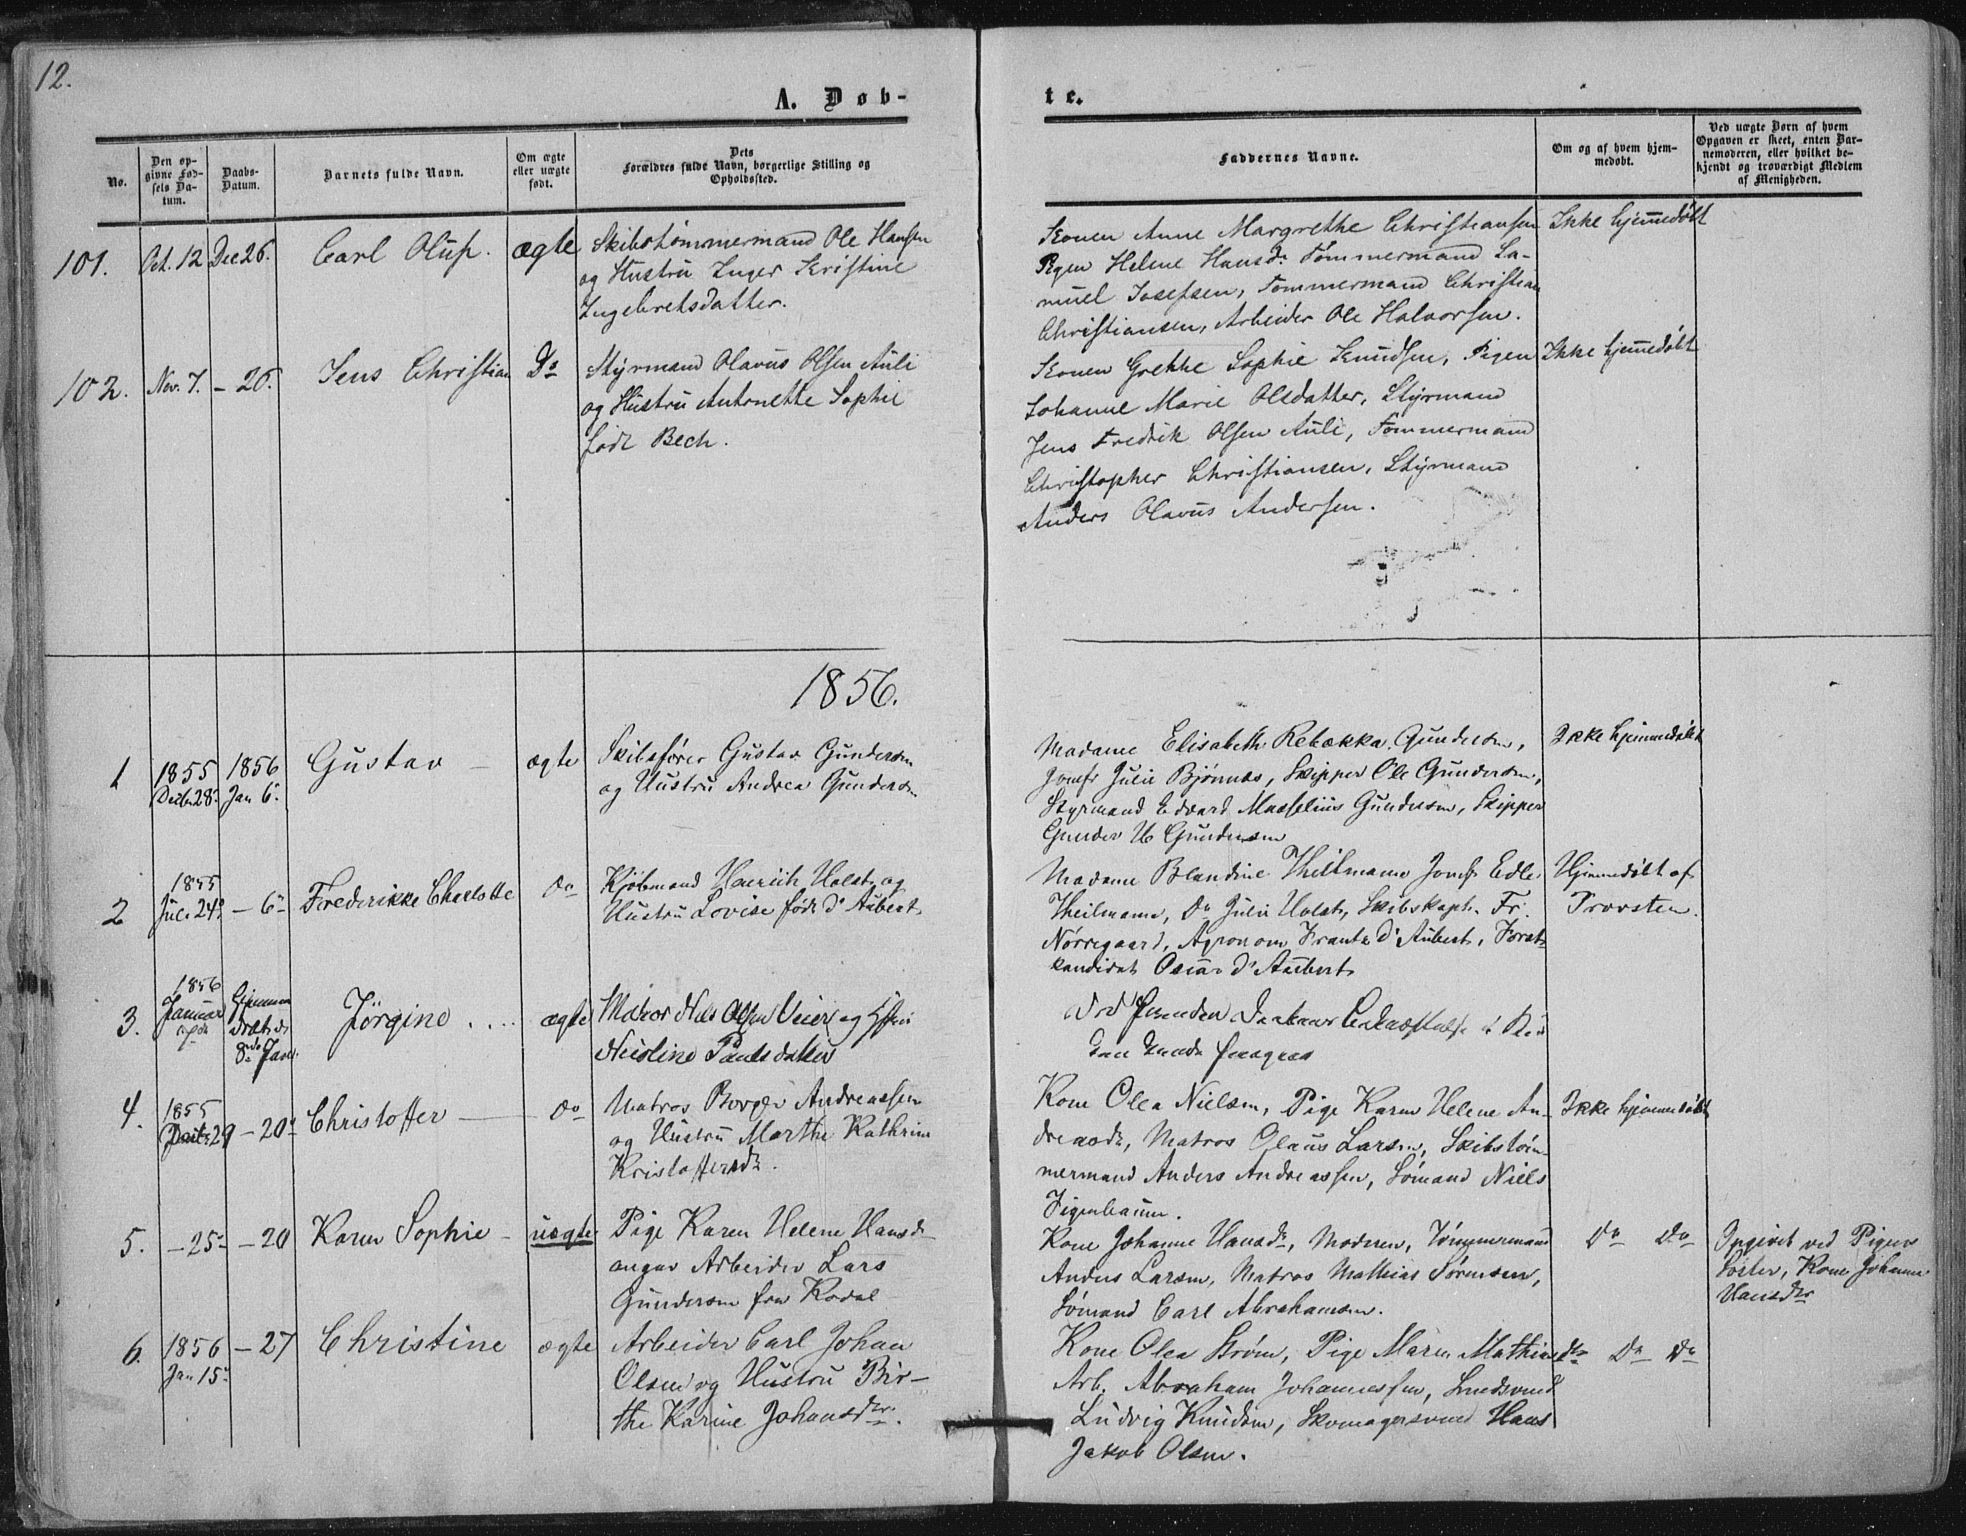 12.
A. Døb-
te.
No.
Den op-
givne Fød-
sels Da-
tum.
Daabs-
Datum.
Barnets fulde Navn.
Om ægte
eller uægte
født.
Dets
Forældres fulde Navn, borgerlige Stilling og
Opholdssted.
Faddernes Navne.
Om og af hvem hjem-
medøbt.
Ved uægte Børn af hvem
Opgaven er skeet, enten Bar-
nemoderen, eller hvilket be-
kjendt og troværdigt Medlem
af Menigheden.
101. Oct. 12 Dec 26. Carl Oluf. ægte
Skibstømmermand Ole Hansen
og Hustru Inger Kristine
Ingebretsdatter.
Konen Anne Margrethe Christiansen
Pigen Helene Hansdr Tømmermand Sa-
muel Josefsen, Tømmermand Christian
Christiansen, Arbeider Ole Halvorsen.
Ikke hjemmedøbt
102. Nov. 7. - 26. Jens Christian Do
Styrmand Olavus Olsen Auli
og Hustru Antonette Sophie
født Bech.
Konen Grethe Sophie Knudsen, Pigen
Johanne Marie Olsdatter, Styrmand
Jens Fredrik Olsen Auli, Tømmermand
Christopher Christiansen, Styrmand
Anders Olavus Andersen.
Ikke hjemmedøbt
1856.
1 1855 Decbr 28. 1856 Jan 6. Gustav - ægte
Skibsfører Gustav Gundersen
og Hustru Andrea Gundersen
Madame Elisabeth Rebækka Gundersen,
Jomfr Julie Bjønnes, Skipper Ole Gundersen,
Styrmand Edvard Masselius Gundersen, Skipper
Gunder H Gundersen
Ikke hjemmedøbt
2 1855 Juli 24. - 6 Frederikke Charlotte do
Kjøbmand Henrich Holst og
Hustru Lovise født d'Aubert
Madame Blandine Theilmann Jomfr Edle
Theilmann, Do Julie Holst, Skibskapt. Fr.
Nørregaard, Agronom Frantz d'Aubert, Forst-
kandidat Oscar d'Aubert
Hjemmedøbt af
Provsten.
3. 1856 Januar
8de Jan. Jørgine . . . . ægte
Matros Nils Olsen Veier og
Nicoline Paulsdatter
4. 1855 Decbr 29 - 20 Christoffer - do
Matros Borger Andreassen
og Hustru Marthe Kathrine
Kristoffersdr.
Kone Olea Nielsen, Pige Karen Helene An-
dreasdr, Matros Olaus Larsen, Skibstøm-
mermand Anders Andreassen, Sømand Niels
Figenbaum.
Ikke hjemmedøbt
5. - 25 - 20 Karen Sophie - uægte
Pige Karen Helene Hansdr
angav Arbeider Lars
Gundersen fra Kodal
Kone Johanne Hansdr, Moderen, Tømmermand
Anders Larsen, Matros Mathias Sørensen,
Sømand Carl Abrahamsen.
Do Do
Opgivet ved Pigens
Søster, Kone Johanne
Hansdtr
6. 1856 Jan 15 - 27 Christine ægte
Arbeider Carl Johan
Olsen og Hustru Bir-
the Karine Johansdtr.
Kone Olea Strøm, Pige Maren Mathiasdtr
Arb. Abraham Johannessen, Smedsvend
Ludvig Knudsen, Skomagersvend Hans
Jakob Olsen.
Do Do